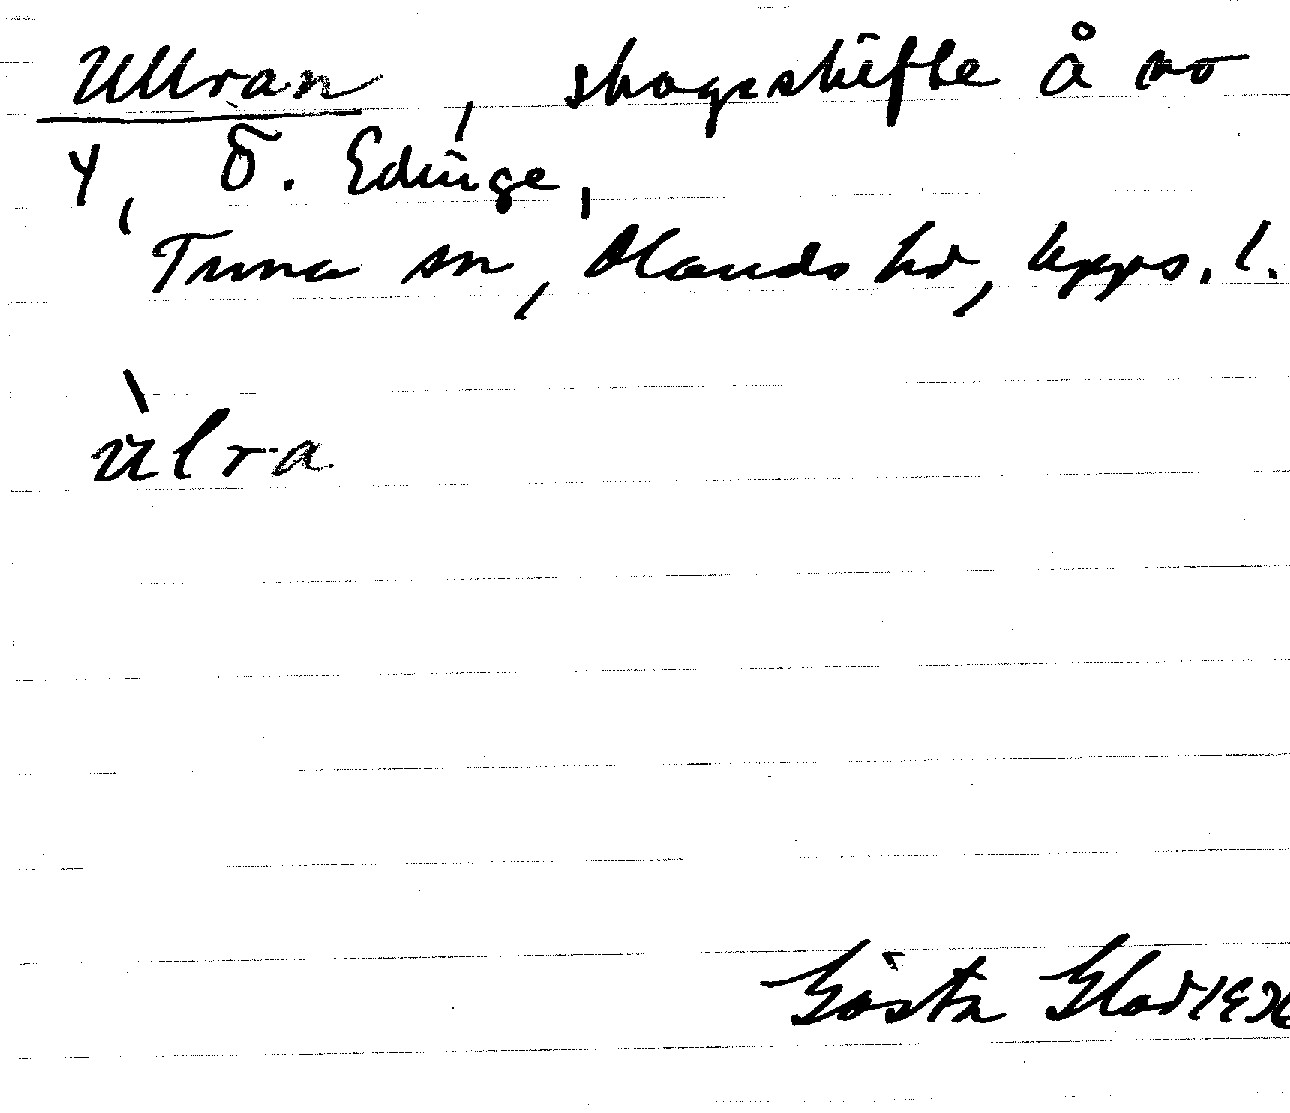 Ullran, skogsskifte å no
4, Ö. Edinge,
Tuna sn, Olands hd, Upps. l.
ùlra
Gösta Glad